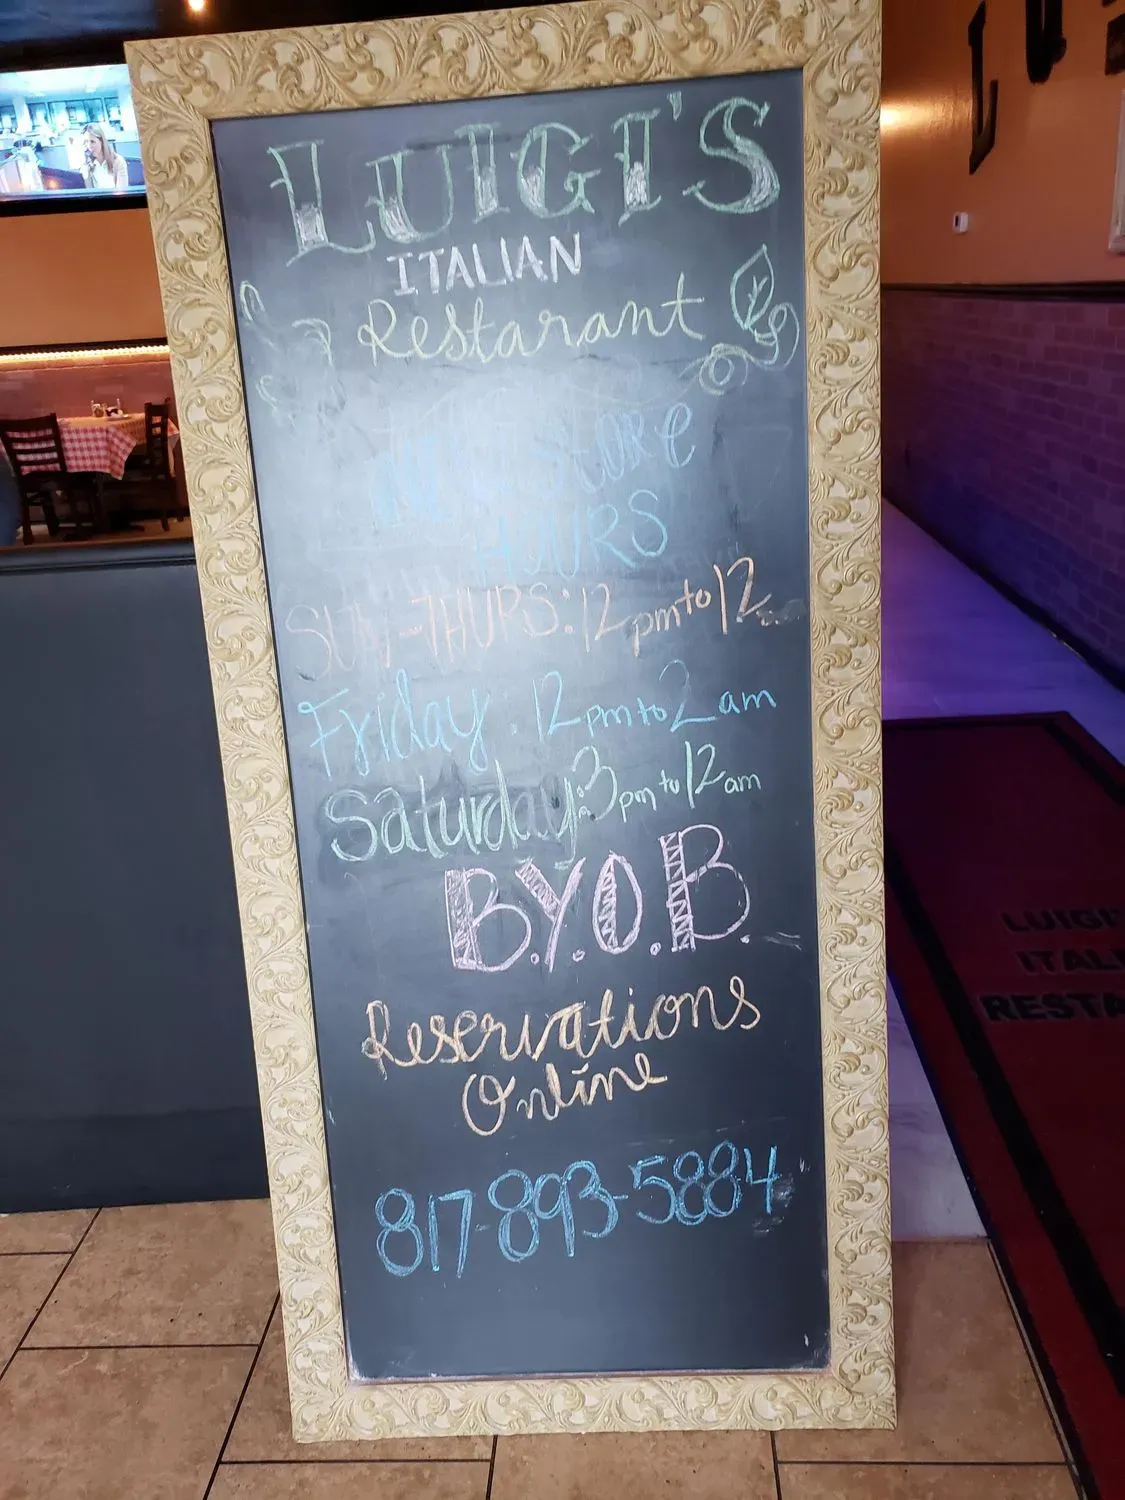 LUIGI'S
ITALIAN
Restarant
STORE
HOURS
SUN-THURS: 12pm to 12
Friday: 12pm to 2am
Saturday: 3pm to 12am
B.Y.O.B.
Reservations
Online
817-893-5884
LUIGI
ITAL
RESTA